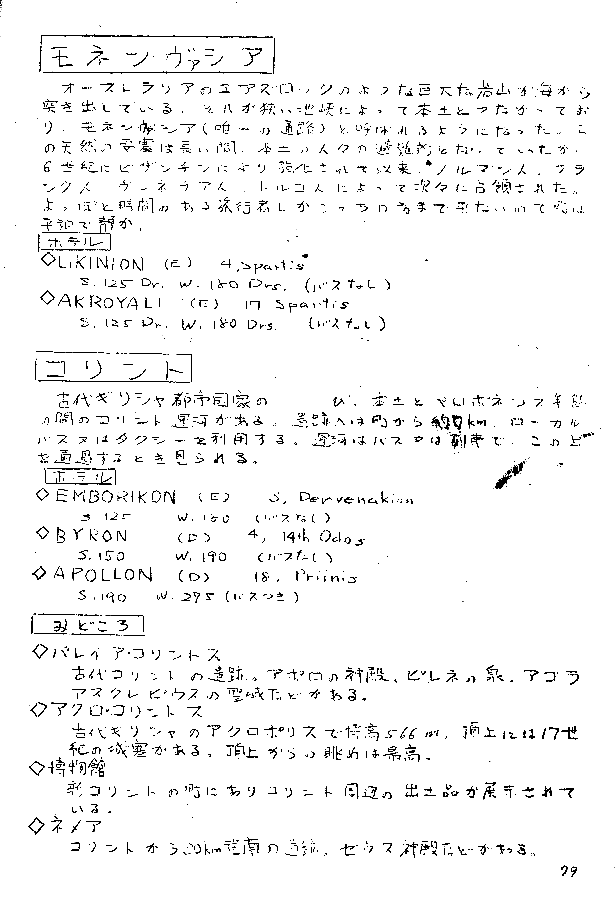 モネンヴァシア
オーストラリアのエアズロックのような巨大な岩山が海から
突き出している。それが狭い地峡によって本土とつながってお
り、モネンヴァシア(唯一の通路)と呼ばれるようになった。こ
の天然の要塞は長い間、本土の人々の避難所となっていたが、
6世紀にビザンチンにより強化されて以来、ノルマン人、フラ
ンク人、ヴェネツィア人、トルコ人によって次々に占領された。
よっぽど時間のある旅行者しかこっちの方まで来ないので
平和で静か。
ホテル
◇LIKINION (E) 4, Spartis
S. 125 Dr. W. 180 Drs. (バスなし)
◇AKROYALI (E) 17 Spartis
S. 125 Dr. W. 180 Drs. (バスなし)
コリント
古代ギリシャ都市国家の び、本土とペロポネソス半島
の間のコリント運河がある。遺跡へは町から約 km、ローカル
バス又はタクシーを利用する。運河はバス又は列車で、この
を通過するとき見られる。
ホテル
◇EMBORIKON (E) S, Dervenakion
S 125 W. 180 (バスなし)
◇BYRON (D) 4, 14th Odos
S. 150 W. 190 (バスなし)
◇APOLLON (D) 18, Priinis
S. 190 W. 295 (バスつき)
みどころ
◇パレイア・コリントス
古代コリントの遺跡。アポロの神殿、ピレネの泉、アゴラ
アスクレピウスの聖域などがある。
◇アクロ・コリントス
古代ギリシャのアクロポリスで標高566m、頂上には17世
紀の城塞がある。頂上からの眺めは最高。
◇博物館
新コリントの町にありコリント周辺の出土品が展示されて
いる。
◇ネメア
コリントから20km南の遺跡。ゼウス神殿などがある。
79